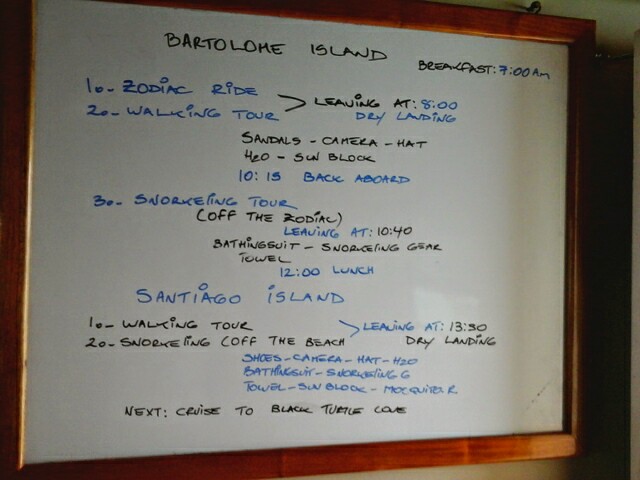 BARTOLOME ISLAND
BREAKFAST: 7:00 AM
1o- ZODIAC RIDE
2o- WALKING TOUR > LEAVING AT: 8:00
DRY LANDING
SANDALS - CAMERA - HAT
H2O - SUN BLOCK
10:15 BACK ABOARD
3o- SNORKELING TOUR
(OFF THE ZODIAC)
LEAVING AT: 10:40
BATHINGSUIT - SNORKELING GEAR
TOWEL
12:00 LUNCH
SANTIAGO ISLAND
1o- WALKING TOUR > LEAVING AT: 13:30
2o- SNORKELING (OFF THE BEACH DRY LANDING
SHOES - CAMERA - HAT - H2O
BATHINGSUIT - SNORKELING G
TOWEL - SUN BLOCK - MOSQUITO R
NEXT: CRUISE TO BLACK TURTLE COVE